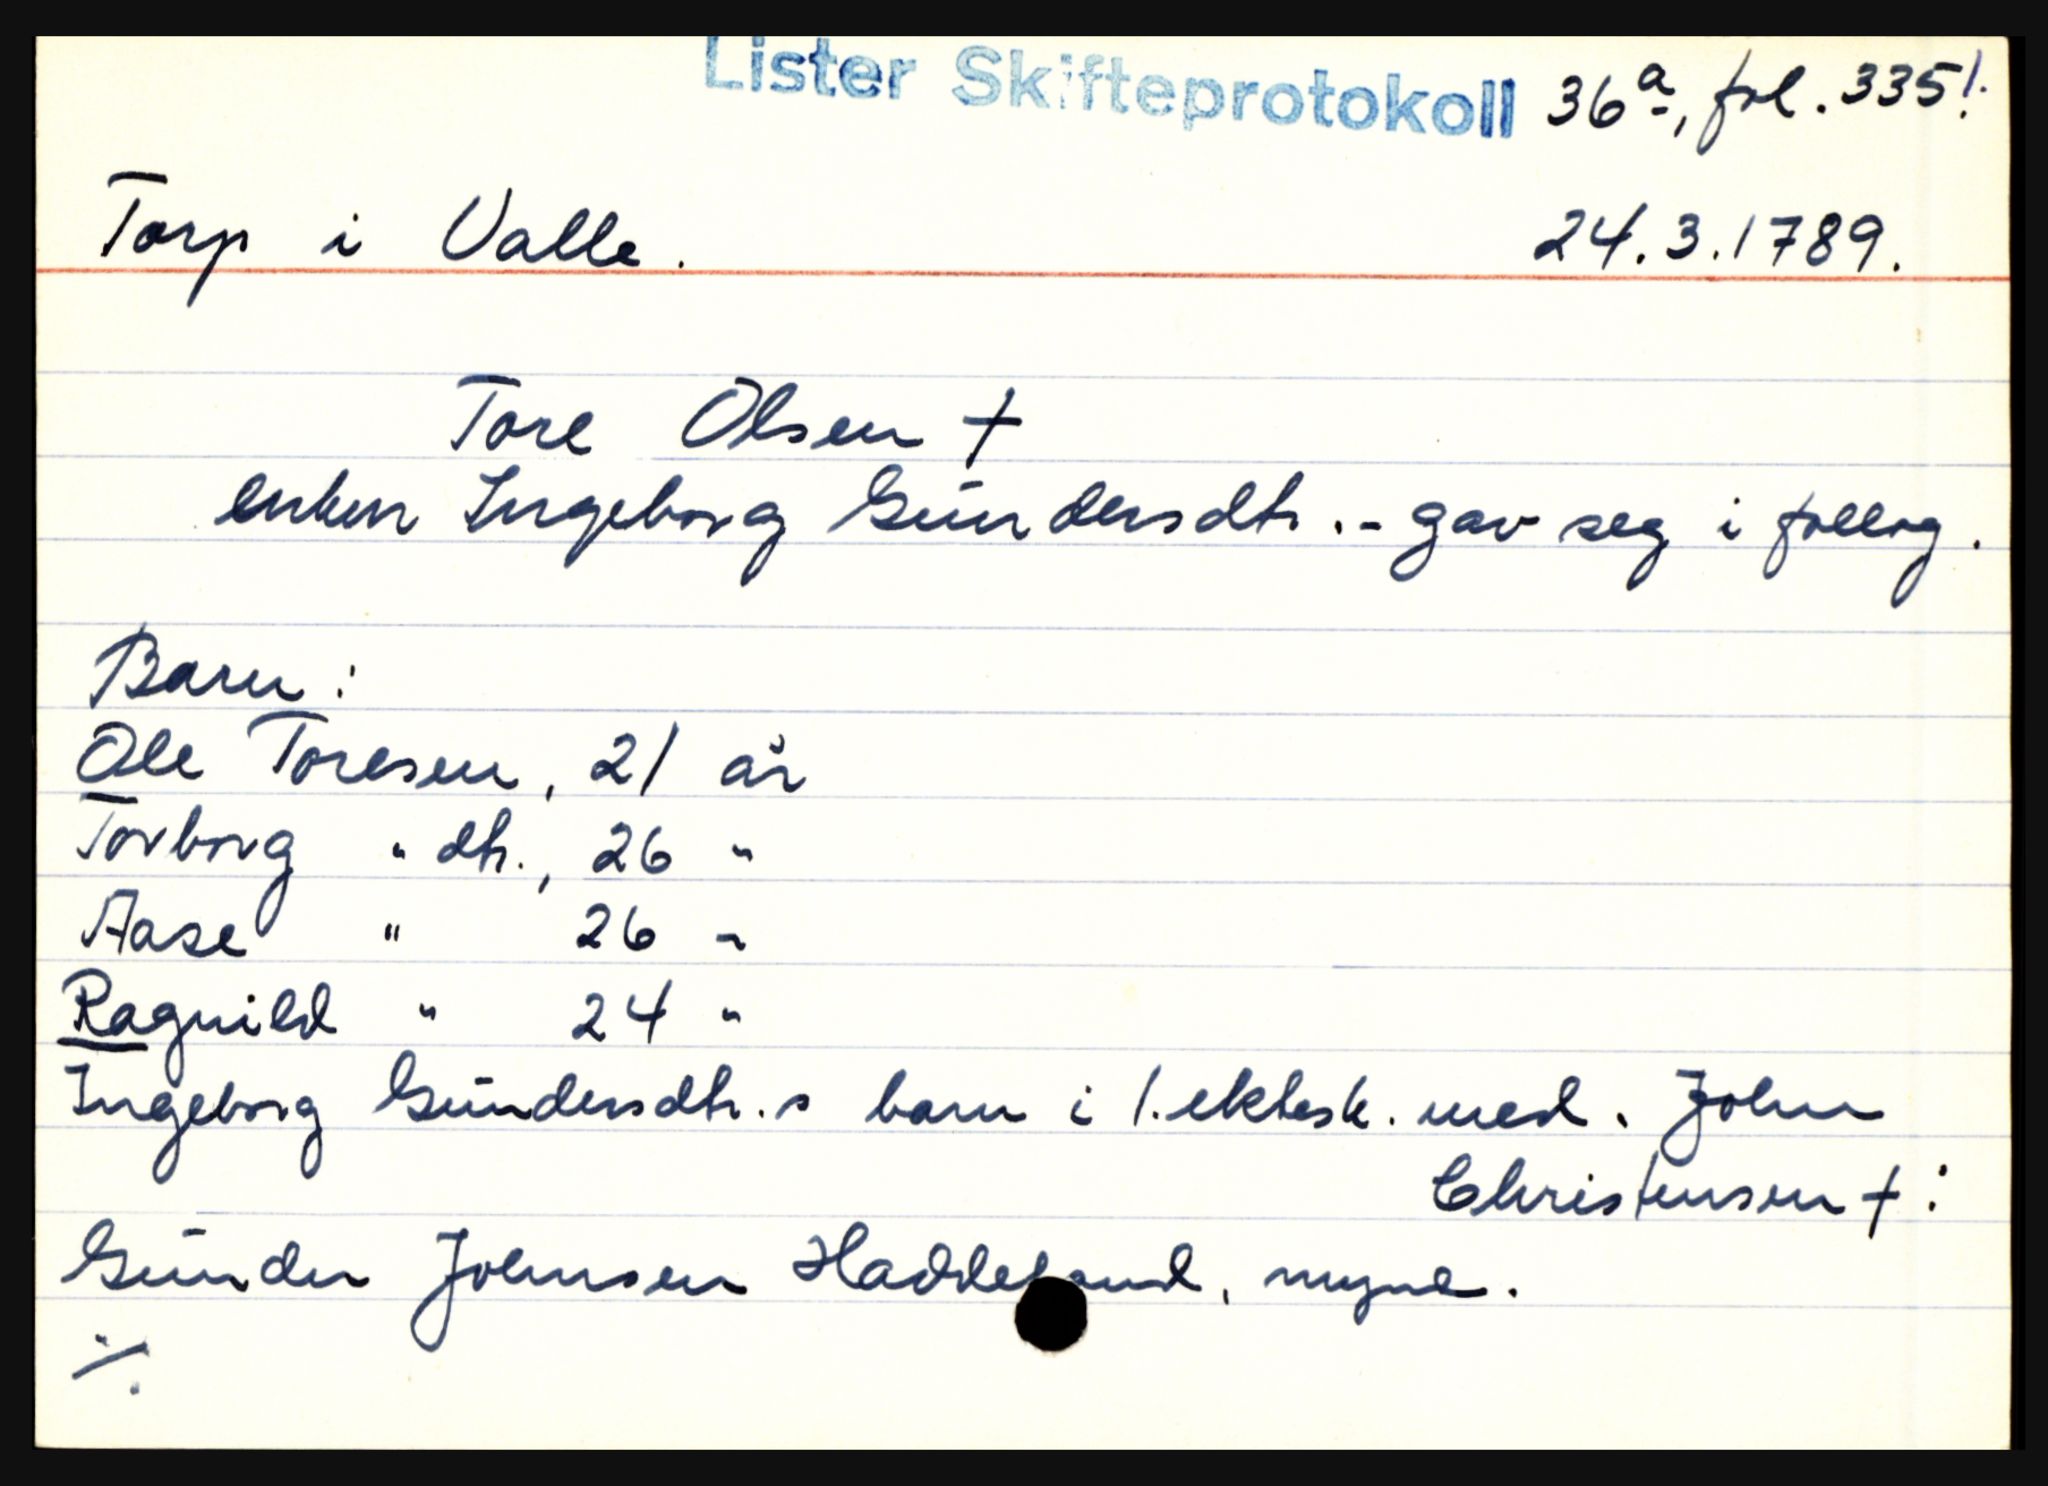 Lister Skifteprotokoll 36a, fol. 335!
Torp i Valle. 24.3.1789.
Tore Olsen †
enken Ingeborg Gundersdtr. - gav seg i fellog.
Barn:
Ole Toresen, 21 år
Torborg " dtr., 26 "
Aase " 26 "
Ragnild " 24 "
Ingeborg Gundersdtr.s barn i 1. ektesk. med. John
Christensen †:
Gunder Johnsen Haddeland, mynd.
·/.